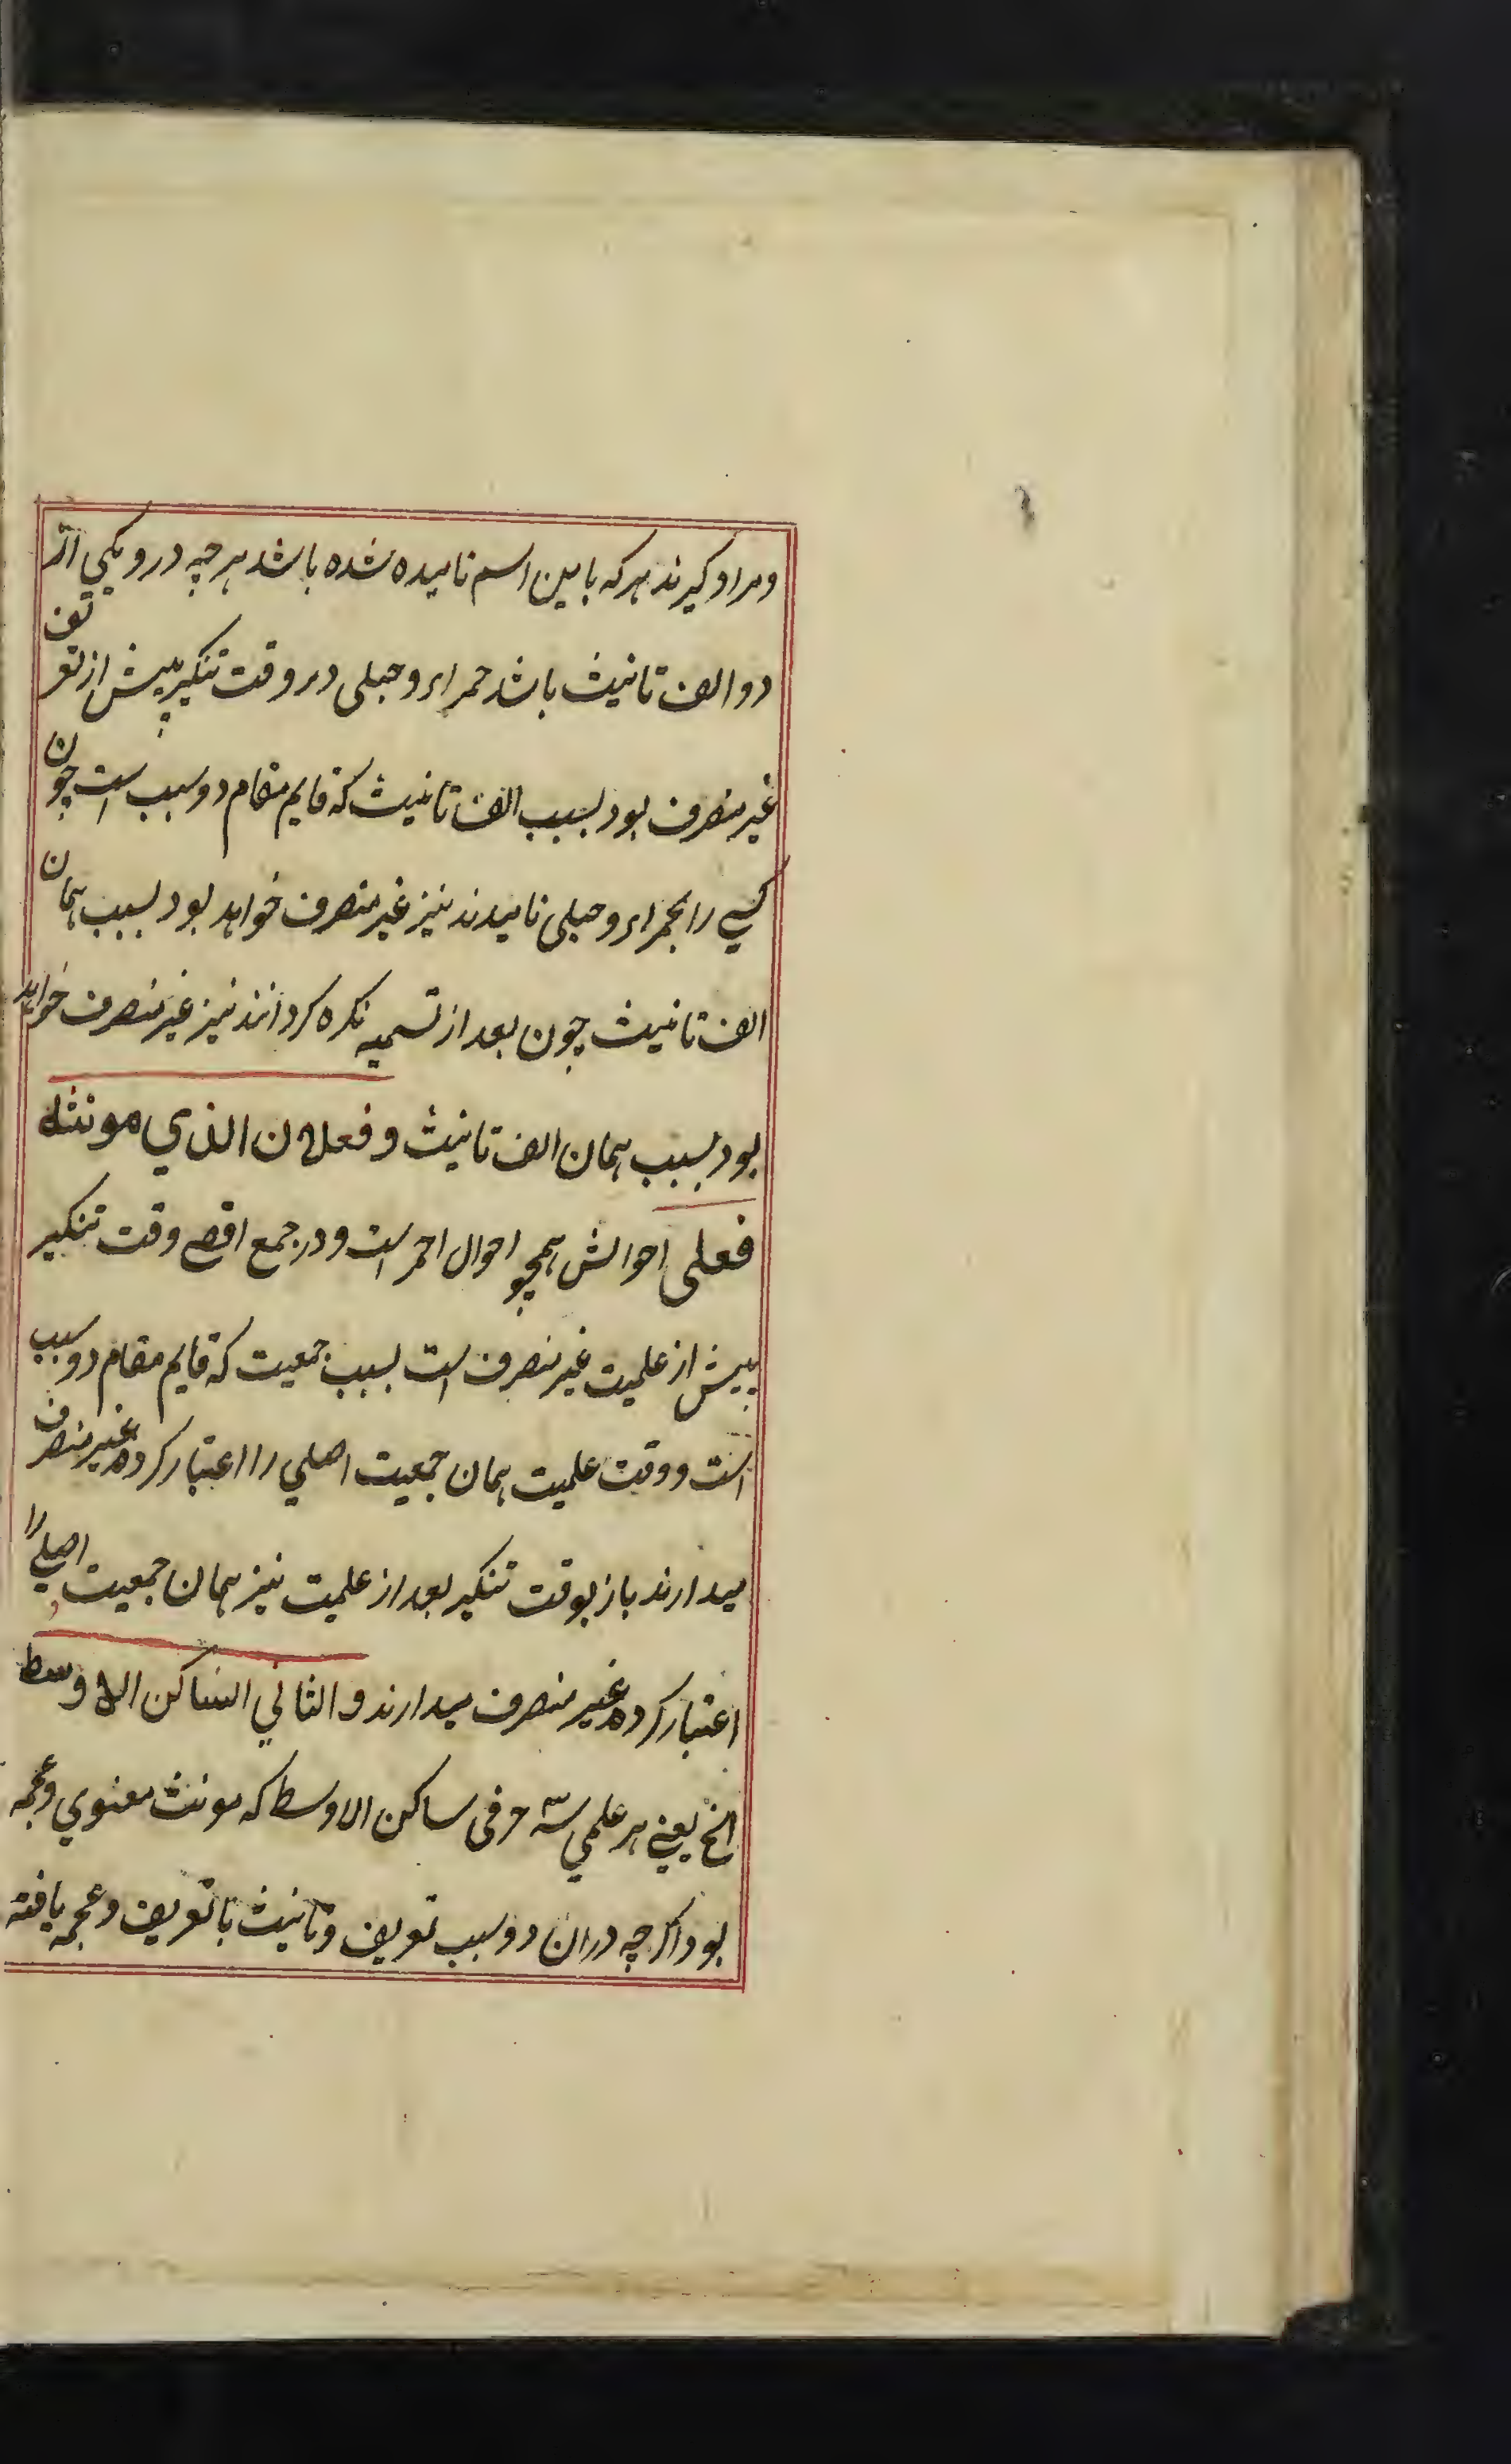 ومراد گیرند هرکه باین اسم نامیده شده باشد هر چه درو یکی از
دو الف تانیث باشد حمراء و حبلی در وقت تنکیر پیش از تعریف
غیر منصرف بود بسبب الف تانیث که قایم مقام دو سبب است چون
کسی را بحمراء و حبلی نامیدند نیز غیر منصرف خواهد بود بسبب همان
الف تانیث چون بعد از تسمیه نکره کردانند نیز غیر منصرف خواهد
بود بسبب همان الف تانیث و فعلان الذي مونثه
فعلی احوالش همچو احوال احمر است و در جمع اقصی وقت تنکیر
پیش از علمیت غیر منصرف است بسبب جمعیت که قایم مقام دو سبب
است و وقت علمیت همان جمعیت اصلي را اعتبار کرده غیر منصرف
میدارند باز بوقت تنکیر بعد از علمیت نیز همان جمعیت اصلي را
اعتبار کرده غیر منصرف میدارند و الثاني الساکن الاوسط
الخ یعنے هر علمي سه حرفی ساکن الاوسط که مونث معنوي و عجمه
بود اگرچه دران دو سبب تعریف و تانیث یا تعریف و عجمه یافته